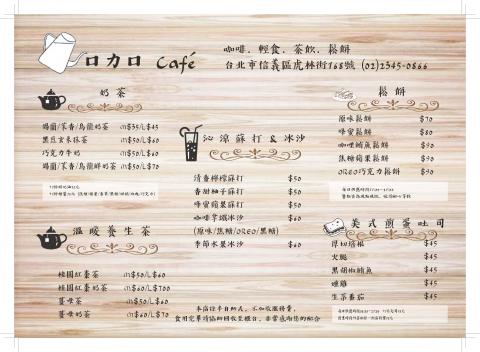 口カ口 Café
咖啡．輕食．茶飲．鬆餅
台北市信義區虎林街168號 (02)2345-0866
奶茶
錫蘭/茉香/烏龍奶茶 M$35/L$45
黑豆玄米抹茶 M$50/L$60
巧克力牛奶 M$50/L$60
錫蘭/茉香/烏龍鮮奶茶 M$50/L$70
溫暖養生茶
桂圓紅棗茶 M$50/L$60
桂圓紅棗奶茶 M$60/L$700
薑母茶 M$50/L$60
薑母奶茶 M$60/L$70
沁涼蘇打 & 冰沙
清香檸檬蘇打 $50
香甜柚子蘇打 $50
蜂蜜蘋果蘇打 $50
咖啡拿鐵冰沙 $60
(原味/焦糖/OREO/黑糖)
季節水果冰沙 $60
本店位子自助式，不加收服務費，
食用完畢請協助回收至櫃台，非常感謝您的配合
鬆餅
原味鬆餅 $70
蜂蜜鬆餅 $80
咖啡鮪魚鬆餅 $90
焦糖蘋果鬆餅 $90
OREO巧克力鬆餅 $90
美式煎蛋吐司
厚切培根 $45
火腿 $45
黑胡椒鮪魚 $45
燻雞 $45
生菜番茄 $45